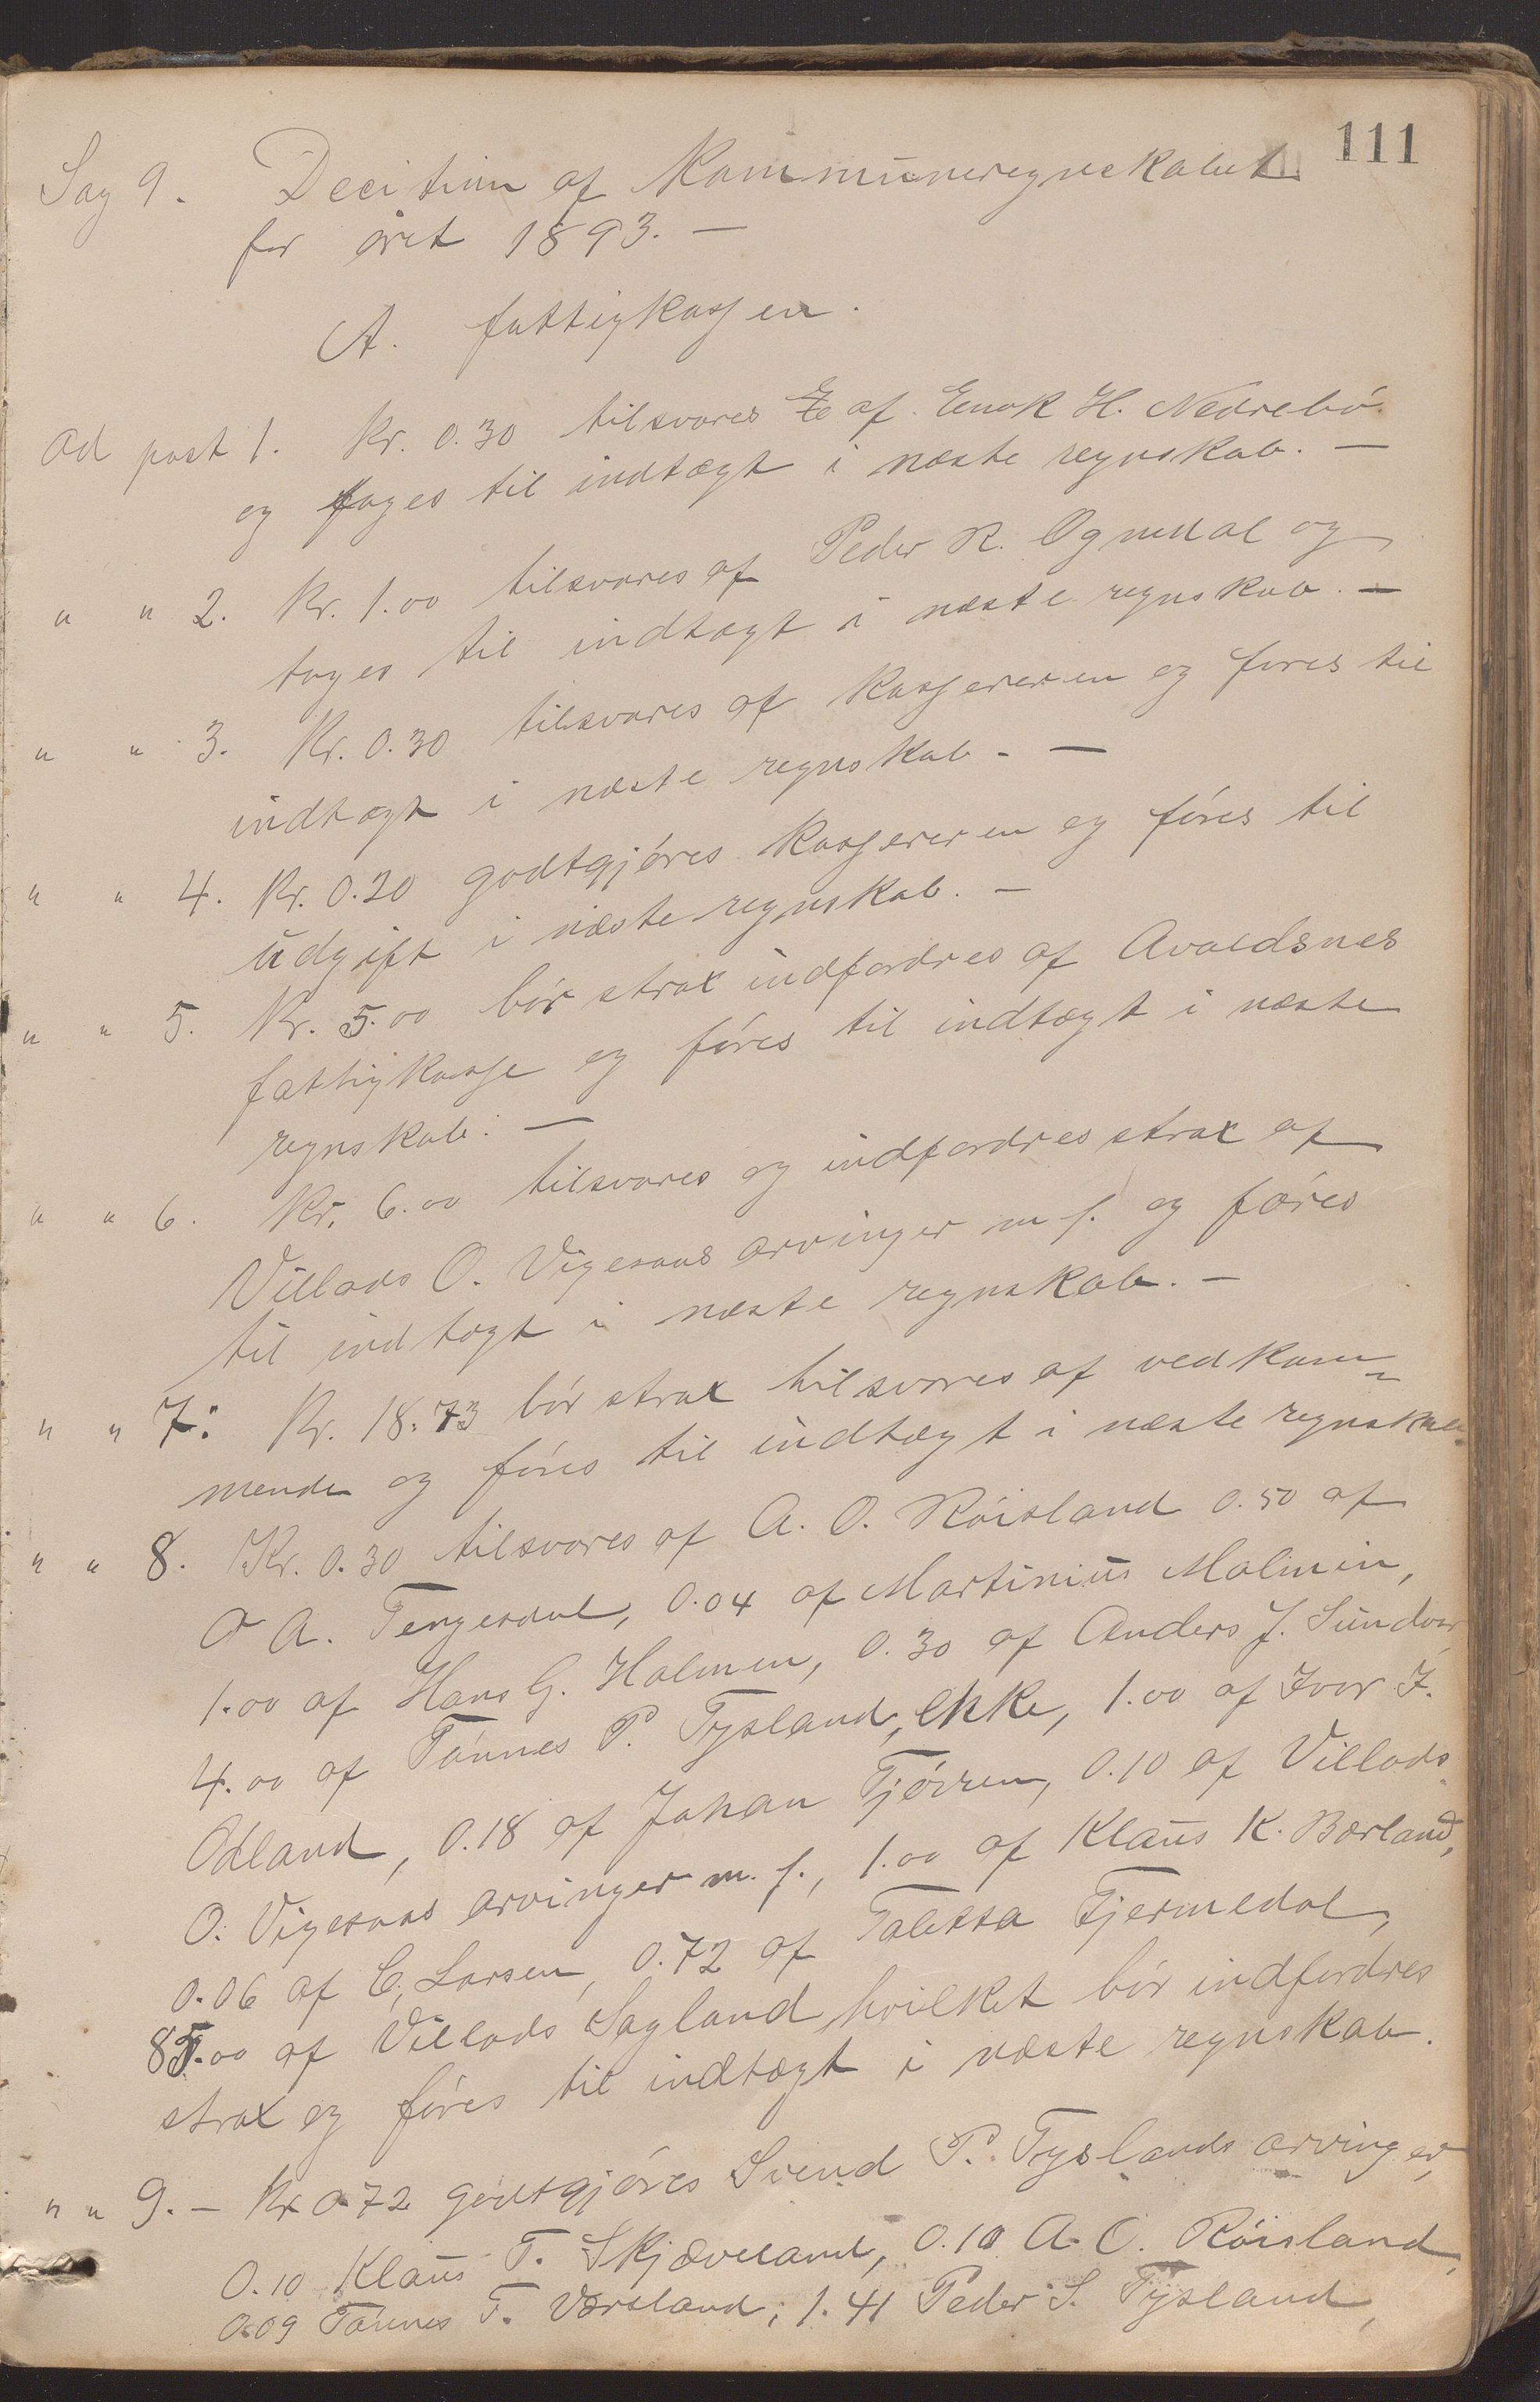 111
Sag 9. Decition af Kommuneregnskabet
for året 1893. —
A. fattigkassen.
Ad post 1. Kr. 0.30 tilsvares af Enok H. Nedrebó
og tages til indtægt i næste regnskab. —
" " 2. Kr. 1.00 tilsvares af Peder R. Ognedal og
tages til indtægt i næste regnskab. —
" " 3. Kr. 0.30 tilsvares af kassereren og føres til
indtægt i næste regnskab. —
" " 4. Kr. 0.20 godtgjóres kassereren og fóres til
udgift i næste regnskab. —
" " 5. Kr. 5.00 bór strax indfordres af Avaldsnes
fattigkasse og fóres til indtægt i næste
regnskab. —
" " 6. Kr. 6.00 tilsvares og indfordres strax af
Villads O. Vigesaas arvinger m f. og føres
til indtægt i næste regnskab. —
" " 7. Kr. 18.73 bór strax tilsvares af vedkom-
mende og fóres til indtægt i næste regnskab.
" " 8. Kr. 0.30 tilsvares af A. O. Róisland 0.50 af
O A. Tengesdal, 0.04 af Martinius Malmin,
1.00 af Hans G. Holmen, 0.30 af Anders J. Sundvor,
4.00 af Tónnes P. Tysland, enke, 1.00 af Ivar I.
Ødland, 0.18 af Johan Tjórren, 0.10 af Villads
O. Vigesaas arvinger m. f., 1.00 af Klaus K. Bærland,
0.06 af C. Larsen, 0.72 af Taletta Fjermedal,
85.00 af Villads Sagland hvilket bór indfordres
strax og fóres til indtægt i næste regnskab.
" " 9. — Kr 0.72 godtgjóres Svend P. Tyslands arvinger,
0.10 Klaus T. Skjæveland, 0.10 A. O. Róisland,
0.09 Tónnes T. Værsland, 1.41 Peder S. Tysland,